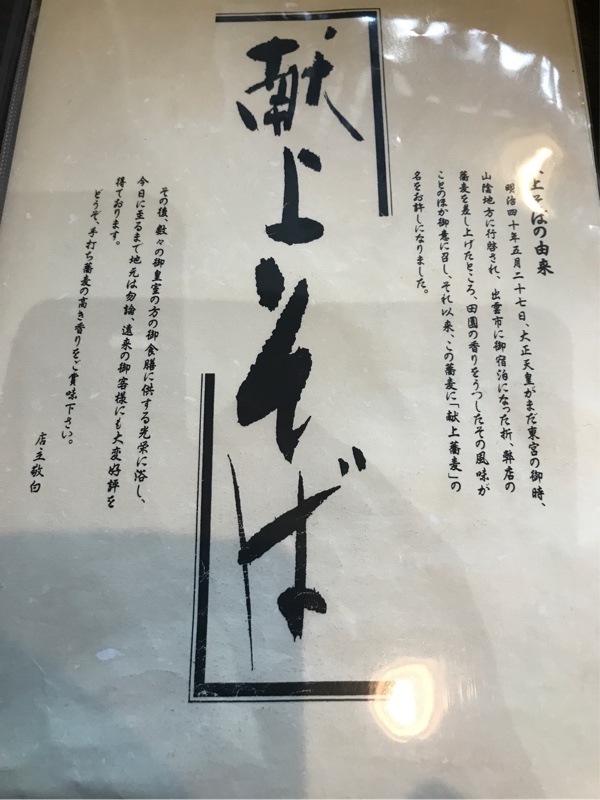 上そばの由来
明治四十年五月二十七日、大正天皇がまだ東宮の御時、
山陰地方に行啓され、出雲市に御宿泊になった折、弊店の
蕎麦を差し上げたところ、田園の香りをうつしたその風味が
ことのほか御意に召し、それ以来、この蕎麦に「献上蕎麦」の
名をお許しになりました。
献上そば
その後、数々の御皇室の方の御食膳に供する光栄に浴し、
今日に至るまで地元は勿論、遠来の御客様にも大変好評を
得ております。
どうぞ、手打ち蕎麦の高き香りをご賞味下さい。
店主敬白